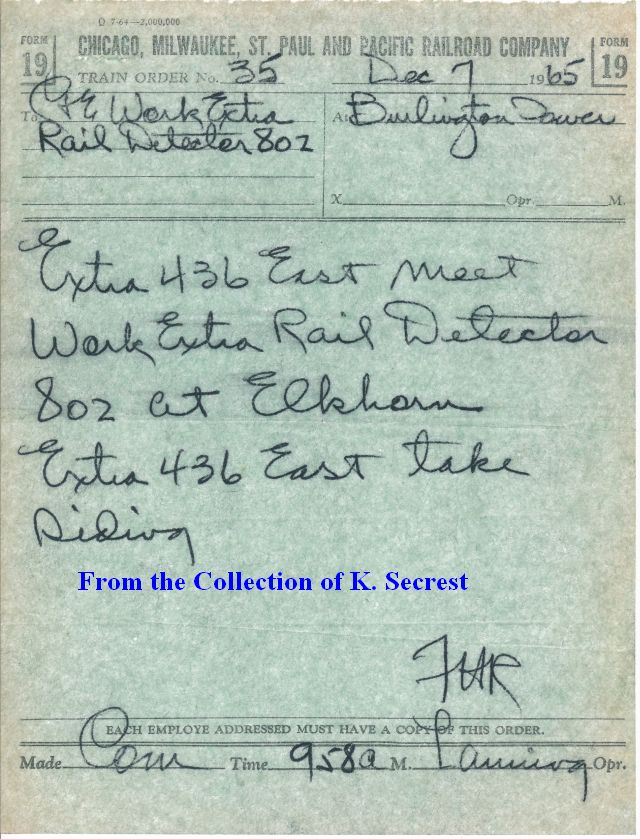 O 7-64—2,000,000
FORM 19 CHICAGO, MILWAUKEE, ST. PAUL AND PACIFIC RAILROAD COMPANY FORM 19
TRAIN ORDER No. 35 Dec 7 1965
To C&E Work Extra At Burlington Tower
Rail Detector 802
X Opr. M.
Extra 436 East meet
Work Extra Rail Detector
802 at Elkhorn
Extra 436 East take
siding
From the Collection of K. Secrest
EACH EMPLOYE ADDRESSED MUST HAVE A COPY OF THIS ORDER.
Made Com Time 958a M. Lanning Opr.